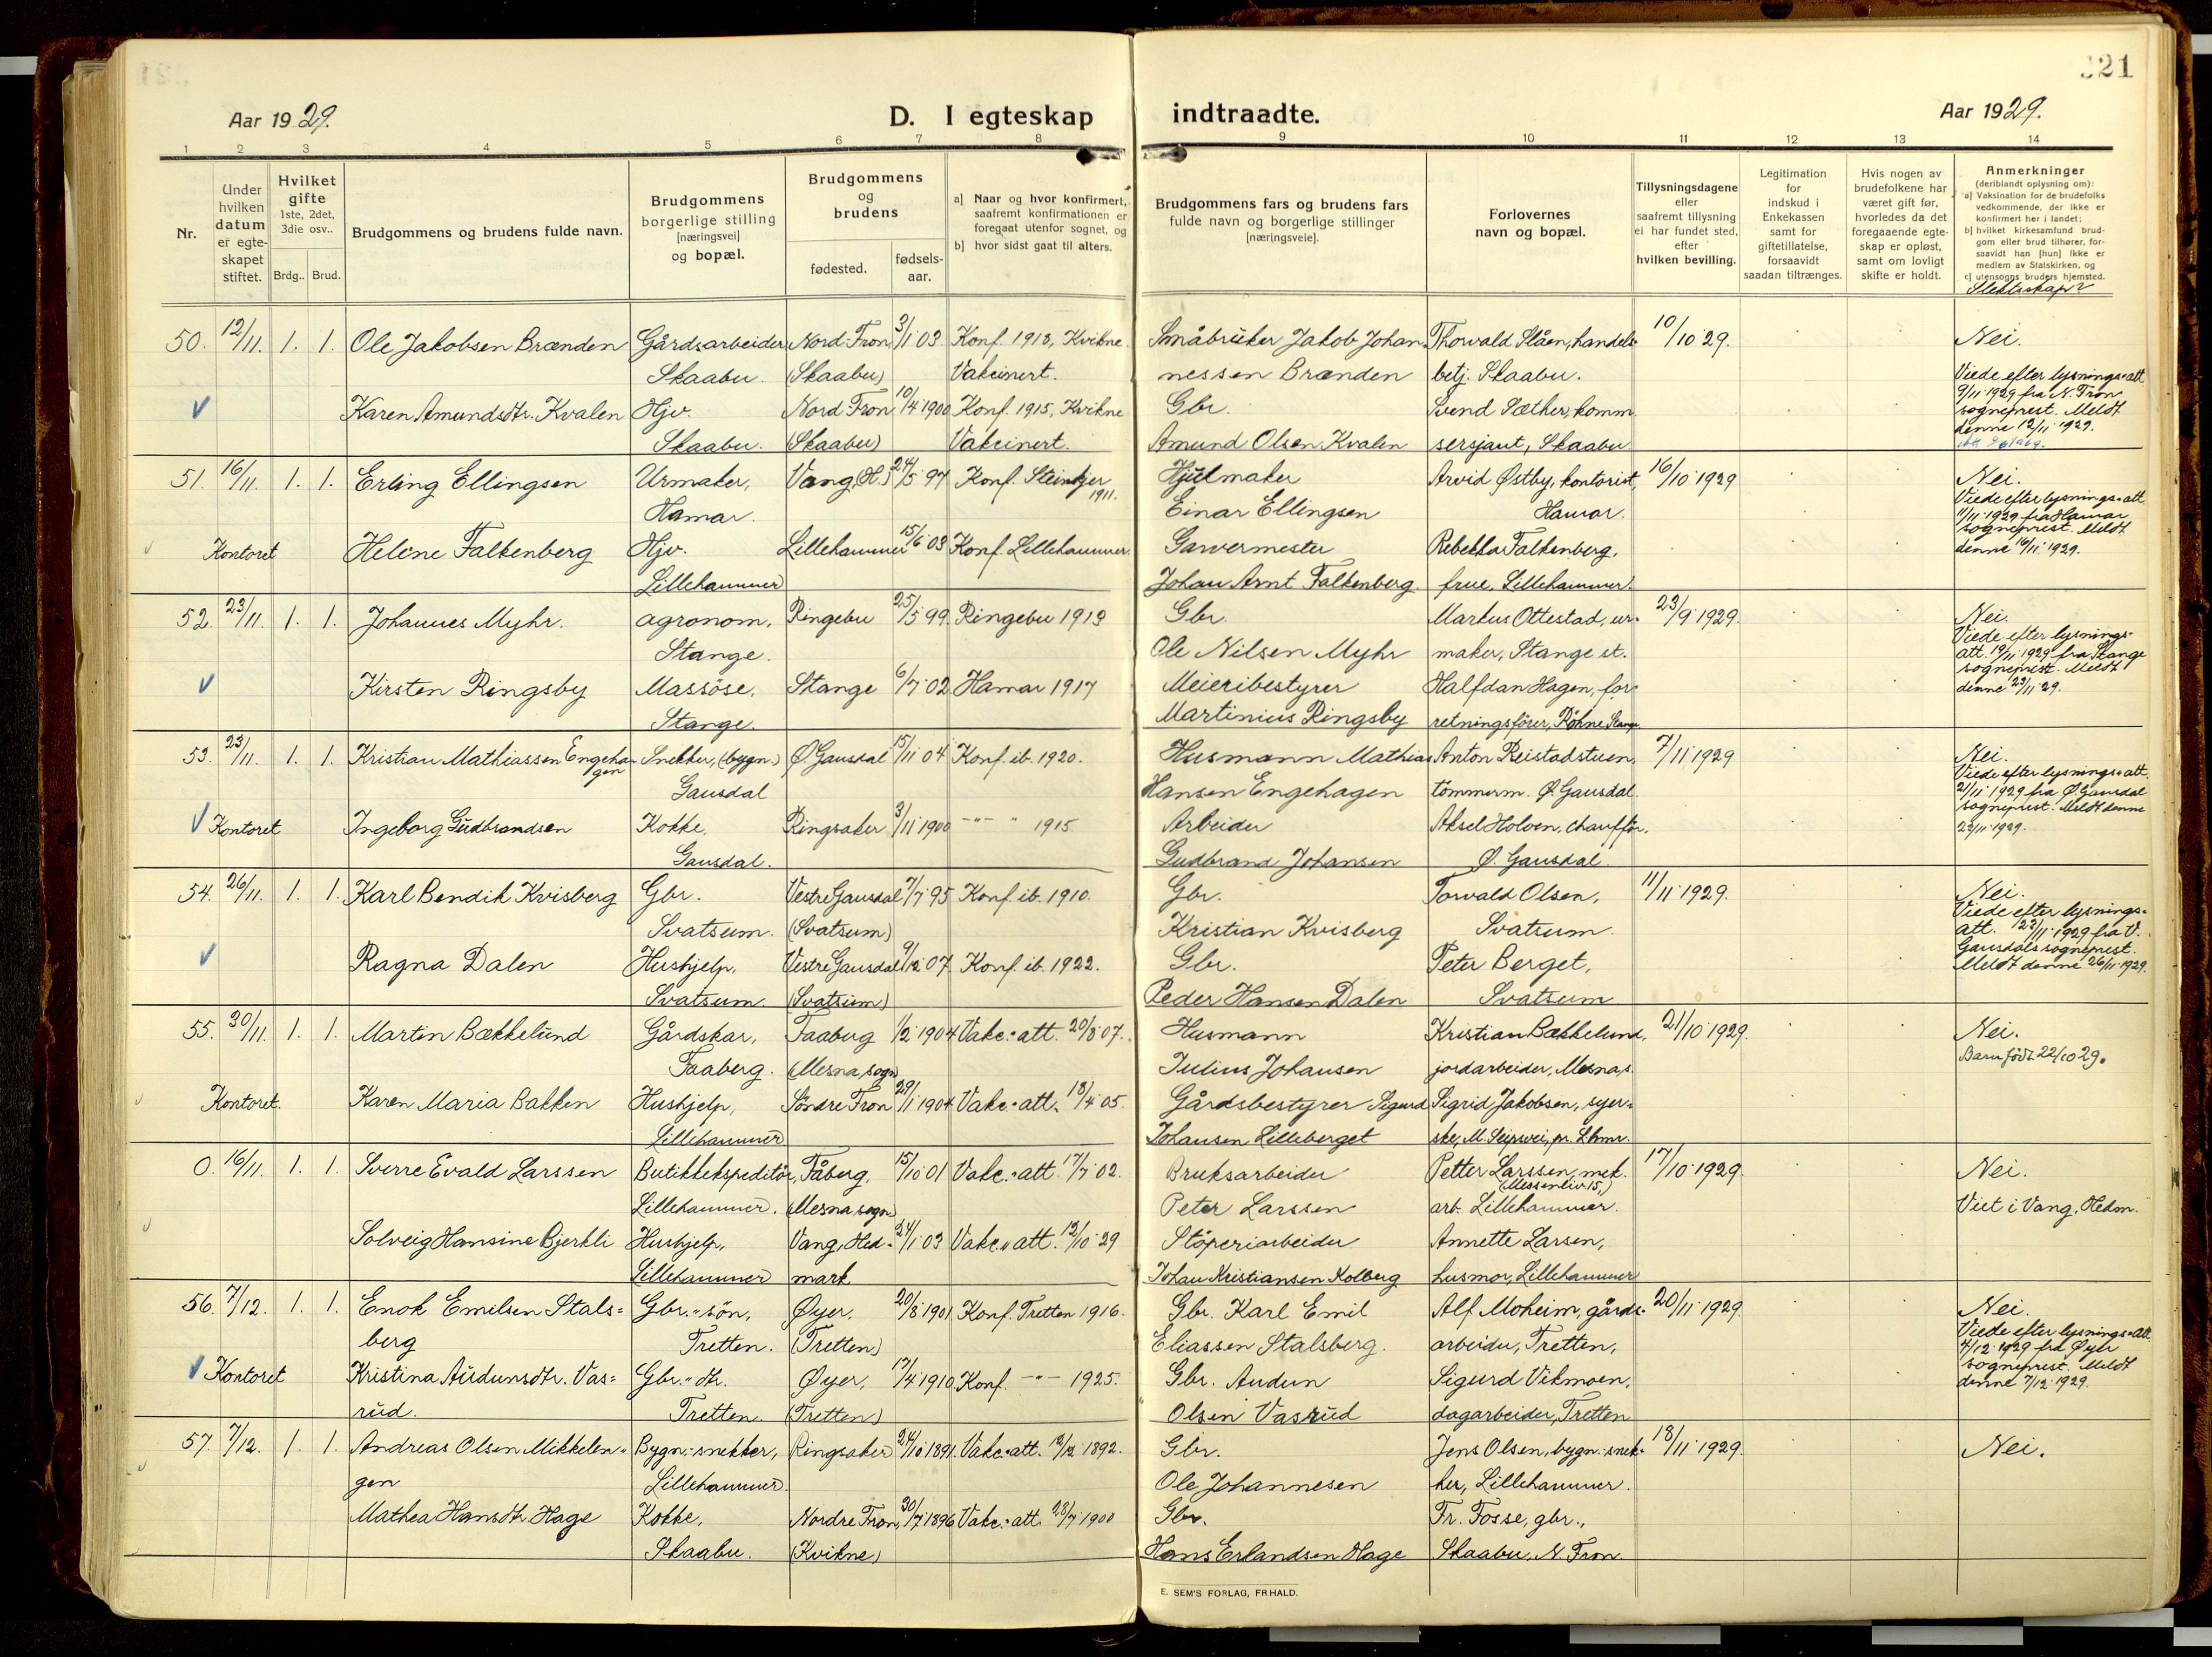 321
Aar 1929.
D. I egteskap indtraadte.
Aar 1929.
1 2 3 4 5 6 7 8 9 10 11 12 13 14
Nr.
Under hvilken datum er egteskapet stiftet.
Hvilket gifte
1ste, 2det, 3die osv..
Brdg.. Brud.
Brudgommens og brudens fulde navn.
Brudgommens borgerlige stilling [næringsvei] og bopæl.
Brudgommens og brudens
fødested. fødsels-aar.
a] Naar og hvor konfirmert, saafremt konfirmationen er foregaat utenfor sognet, og
b] hvor sidst gaat til alters.
Brudgommens fars og brudens fars fulde navn og borgerlige stillinger [næringsveie].
Forlovernes navn og bopæl.
Tillysningsdagene eller saafremt tillysning ei har fundet sted, efter hvilken bevilling.
Legitimation for indskud i Enkekassen samt for giftetillatelse, forsaavidt saadan tiltrænges.
Hvis nogen av brudefolkene har været gift før, hvorledes da det foregaaende egteskap er opløst, samt om lovligt skifte er holdt.
Anmerkninger
(deriblandt oplysning om):
a] Vaksination for de brudefolks vedkommende, der ikke er konfirmert her i landet;
b] hvilket kirkesamfund brudgom eller brud tilhører, forsaavidt han [hun] ikke er medlem av Statskirken, og
c] utensogns bruders hjemsted.
Slektskap?
50. 12/11. 1. 1. Ole Jakobsen Brænden Gårdsarbeider Nord-Fron 3/1 03 Konf. 1918, Kvikne. Småbruker Jakob Johan- Thorvald Slåen, handels- 10/10 29. Nei.
Skaabu. (Skaabu) Vakcinert. nessen Brænden betj. Skaabu. Viede efter lysnings-att.
Karen Amundsdtr. Kvalen Hjv. Nord Fron 10/4 1900 Konf. 1915, Kvikne Gbr. Svend Sæther, komm. 9/11 1929 fra N. Fron sogneprest. Meldt
Skaabu. (Skaabu) Vakcinert. Amund Olsen Kvalen sersjant, Skaabu. denne 12/11 1929.
51. 16/11. 1. 1. Erling Ellingsen Urmaker, Vang, (H.) 24/5 97 Konf. Steinkjer 1911. Hjulmaker Arvid Østby, kontorist, 16/10 1929 Nei.
Hamar. Einar Ellingsen Hamar. Viede efter lysnings-att. 11/11 1929 fra Hamar
Kontoret Helene Falkenberg Hjv. Lillehammer 15/6 03 Konf. Lillehammer. Garvermester Rebekka Falkenberg, sogneprest. Meldt denne 16/11 1929.
Lillehammer Johan Arnt Falkenberg. frue, Lillehammer.
52. 23/11. 1. 1. Johannes Myhr. agronom, Ringebu 25/5 99 Ringebu 1913 Gbr. Markus Ottestad, ur- 23/9 1929. Nei.
Stange. Ole Nilsen Myhr maker, Stange st. Viede efter lysnings-att. 19/11 1929 fra Stange
Kirsten Ringsby Massöse, Stange 6/7 02 Hamar 1917 Meieribestyrer Halfdan Hagen, for- sogneprest. Meldt denne 23/11 29.
Stange. Martinius Ringsby retningsfører, Röhne Stange
53. 23/11. 1. 1. Kristian Mathiassen Engehagen Snekker, (bygn.) Ø. Gausdal 15/11 04 Konf. ib. 1920. Husmann Mathias Anton Reistadstuen, 7/11 1929 Nei.
Gausdal Hansen Engehagen tömmerm. Ø. Gausdal. Viede efter lysnings-att. 21/11 1929 fra Ø. Gausdal
Kontoret Ingeborg Gudbrandsen Kokke, Ringsaker 3/11 1900 -"- " 1915 Arbeider Aksel Holoen, chauffør, sogneprest. Meldt denne 23/11 1929.
Gausdal. Gudbrand Johansen Ø. Gausdal.
54. 26/11. 1. 1. Karl Bendik Kvisberg Gbr. Vestre Gausdal 7/7 95 Konf. ib. 1910. Gbr. Torvald Olsen, 11/11 1929. Nei.
Svatsum. (Svatsum) Kristian Kvisberg Svatsum. Viede efter lysnings-att. 23/11 1929 fra V.
Ragna Dalen Hushjelp, Vestre Gausdal 9/12 07 Konf. ib. 1922. Gbr. Peter Berget, Gausdals sogneprest.
Svatsum. (Svatsum) Peder Hansen Dalen Svatsum Meldt denne 26/11 1929.
55. 30/11. 1. 1. Martin Bækkelund Gårdskar, Faaberg 1/2 1904 Vakc.-att. 20/8 07. Husmann Kristian Bækkelund, 21/10 1929. Nei.
Faaberg. (Mesna sogn) Julius Johansen jordarbeider, Mesna s. Barn født 22/10 29.
Kontoret. Karen Maria Bakken Hushjelp, Söndre Fron 29/11 1904 Vakc.-att. 18/4 05. Gårdsbestyrer Sigurd Sigrid Jakobsen, syer-
Lillehammer Johansen Lilleberget ske, M. Seipsvei, pr. Lhmr.
0. 16/11. 1. 1. Sverre Evald Larssen Butikkekspeditör, Fåberg, 15/10 01 Vakc.-att. 17/7 02. Bruksarbeider Petter Larssen, mek. 17/10 1929. Nei.
(Messenliv. 15,)
Lillehammer. (Mesna sogn) Peter Larssen arb. Lillehammer. Viet i Vang, Hedm.
Solveig Hansine Bjerkli Hushjelp, Vang, Hed- 24/1 03 Vakc.-att. 12/10 29 Störperiarbeider Annette Larsen,
Lillehammer mark Johan Kristiansen Kolberg husmor, Lillehammer
56. 7/12. 1. 1. Enok Emilsen Stals- Gbr.-sön, Øyer, 20/8 1901 Konf. Tretten 1916. Gbr. Karl Emil Alf Moheim, gårds- 20/11 1929. Nei.
berg Tretten. (Tretten) Eliassen Stalsberg. arbeider, Tretten, Viede efter lysnings-att. 4/12 1929 fra Øyer
Kontoret Kristina Audunsdtr. Vas- Gbr.-dtr. Øyer, 17/4 1910 Konf. -"- 1925. Gbr. Audun Sigurd Vikmoen, sogneprest. Meldt denne 7/12 1929.
rud. Tretten. (Tretten) Olsen Vasrud dagarbeider, Tretten
57. 7/12. 1. 1. Andreas Olsen Mikkelen- Bygn.-snekker, Ringsaker 24/10 1891. Vakc.-att. 12/12 1892. Gbr. Jens Olsen, bygn.-snek- 18/11 1929. Nei.
gen Lillehammer. Ole Johannesen ker, Lillehammer.
Mathea Hansdtr. Hage Kokke, Nordre Fron, 30/7 1896 Vakc.-att. 28/7 1900 Gbr. Fr. Fosse, gbr.,
Skaabu. (Kvikne) Hans Erlandsen Hage Skaabu, N. Fron.
E. SEM'S FORLAG, FR.HALD.